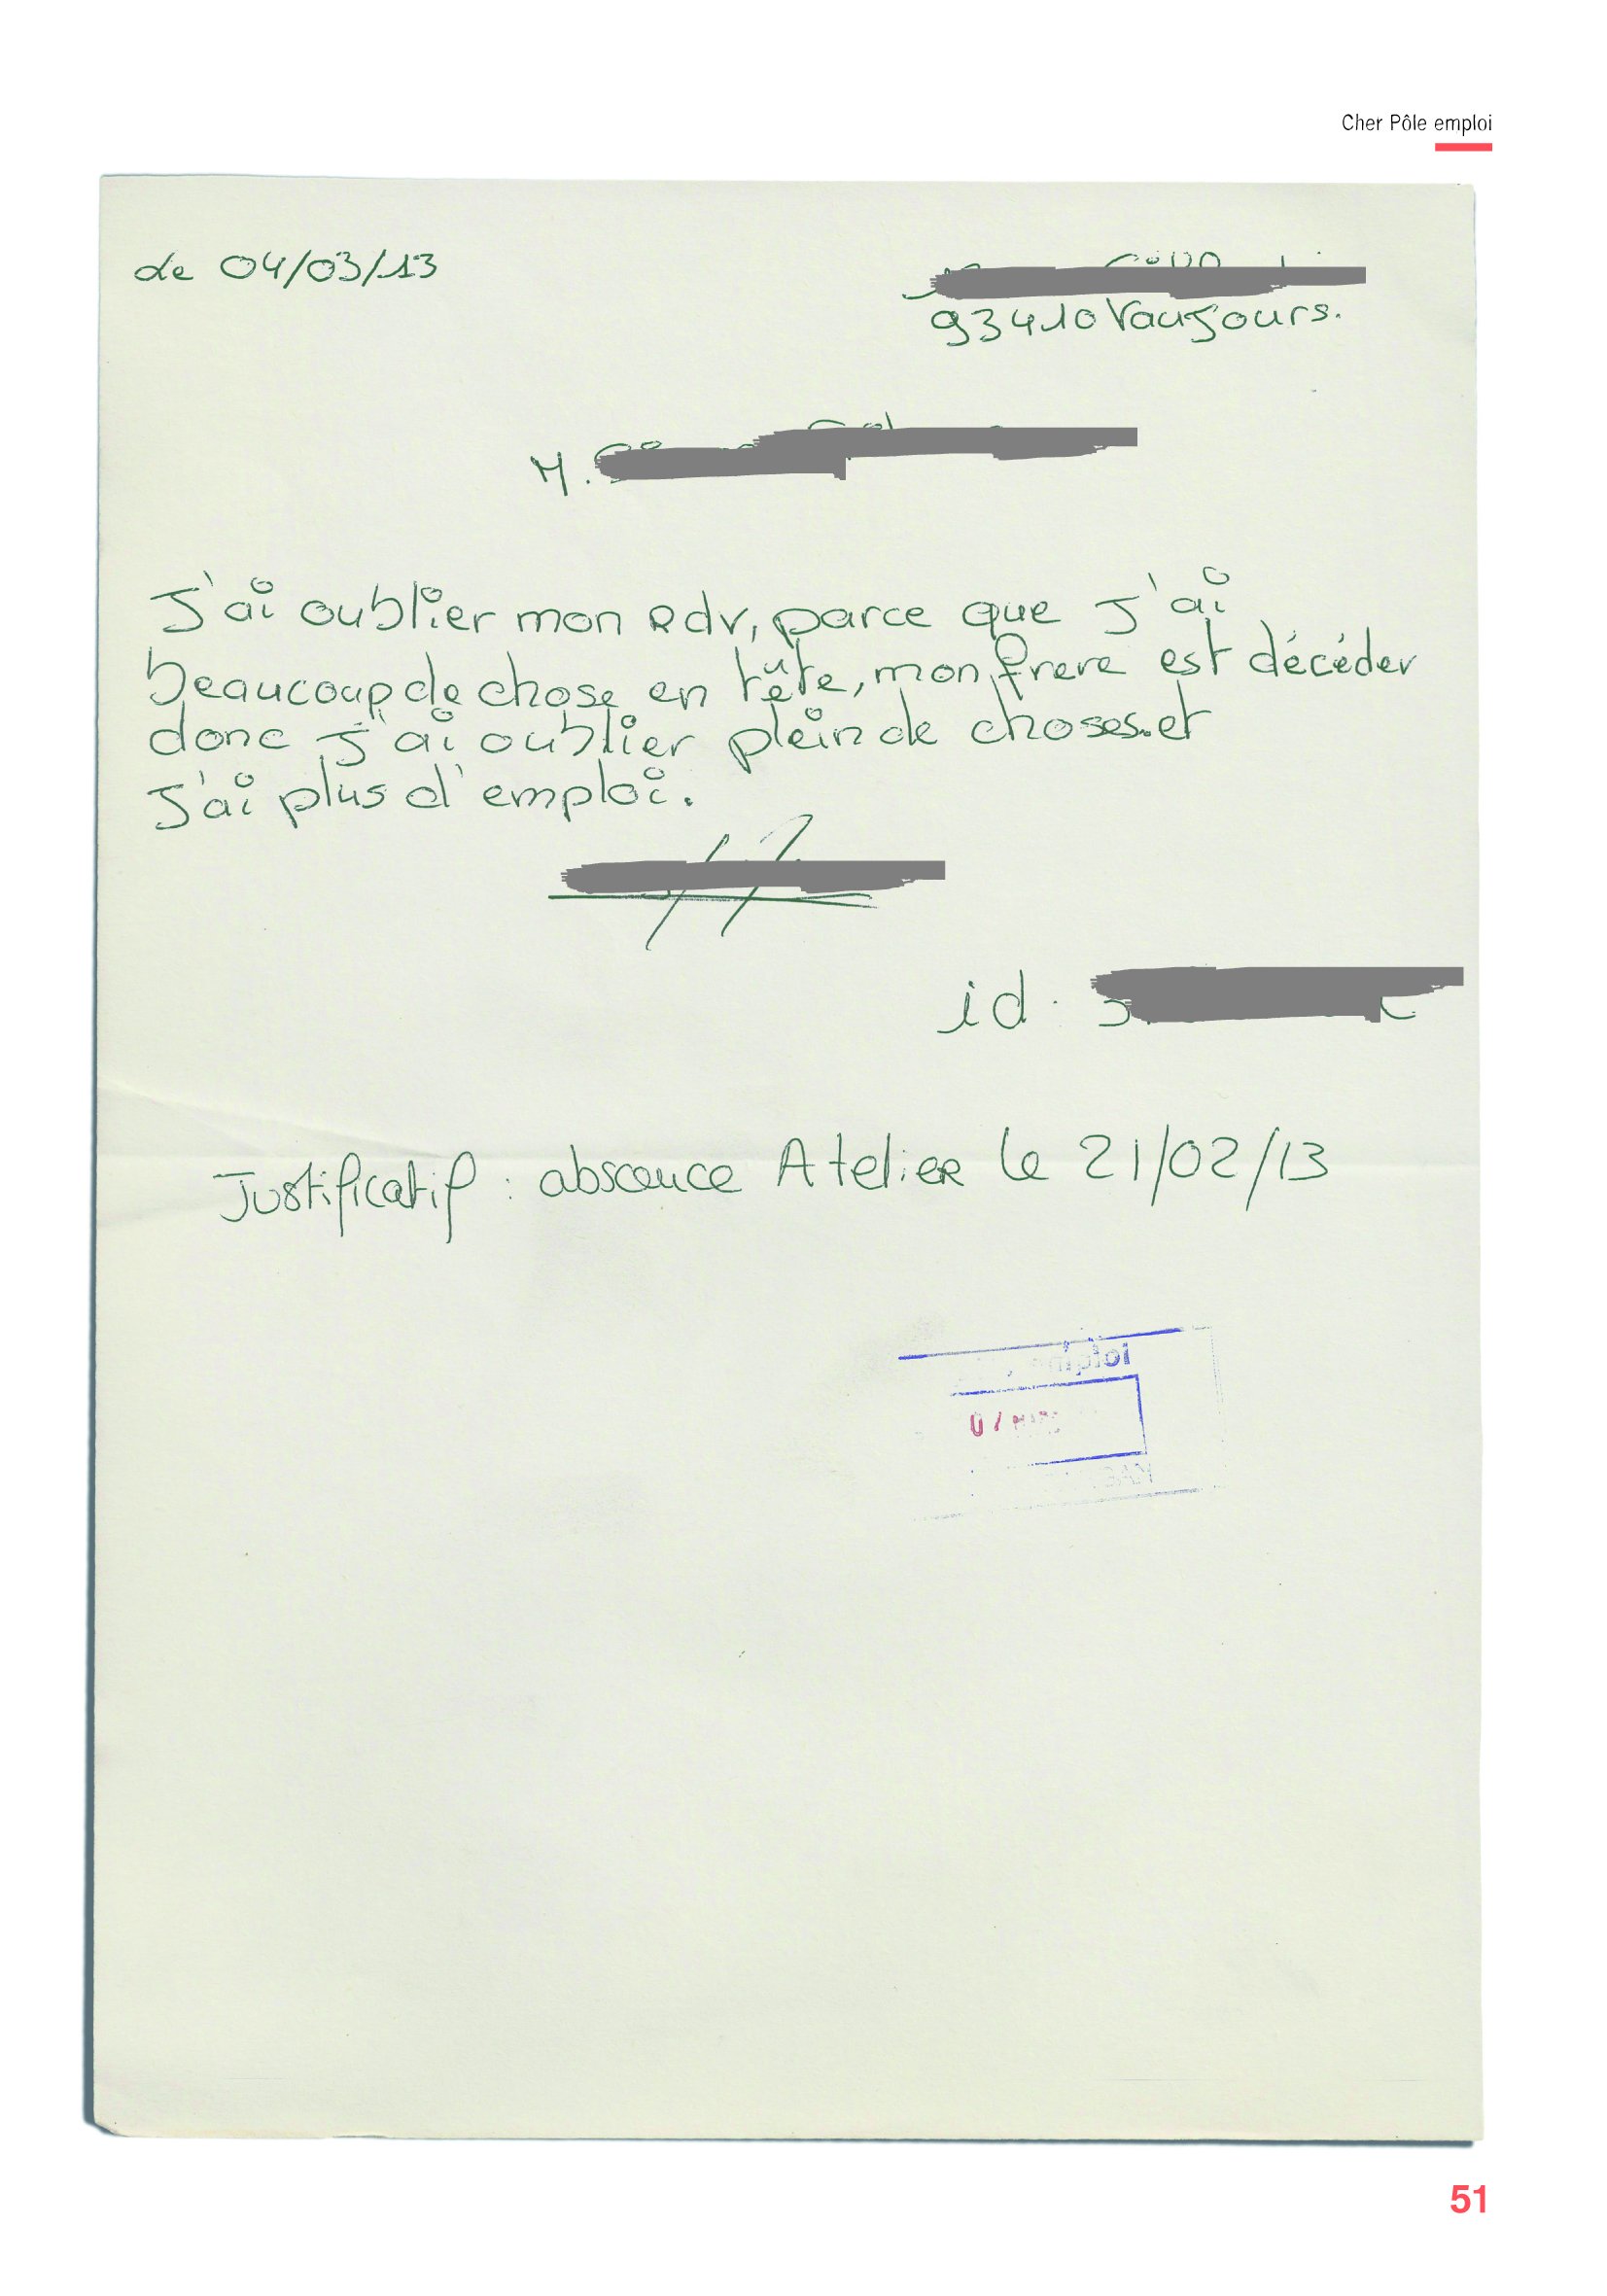 Cher Pôle emploi
de 04/03/13
93410 Vaujours.
M.
J'ai oublier mon Rdv, parce que J'ai
beaucoup de chose en tête, mon frere est décéder
donc J'ai oublier plein de choses.et
J'ai plus d'emploi.
id :
Justificatif : absence Atelier le 21/02/13
51